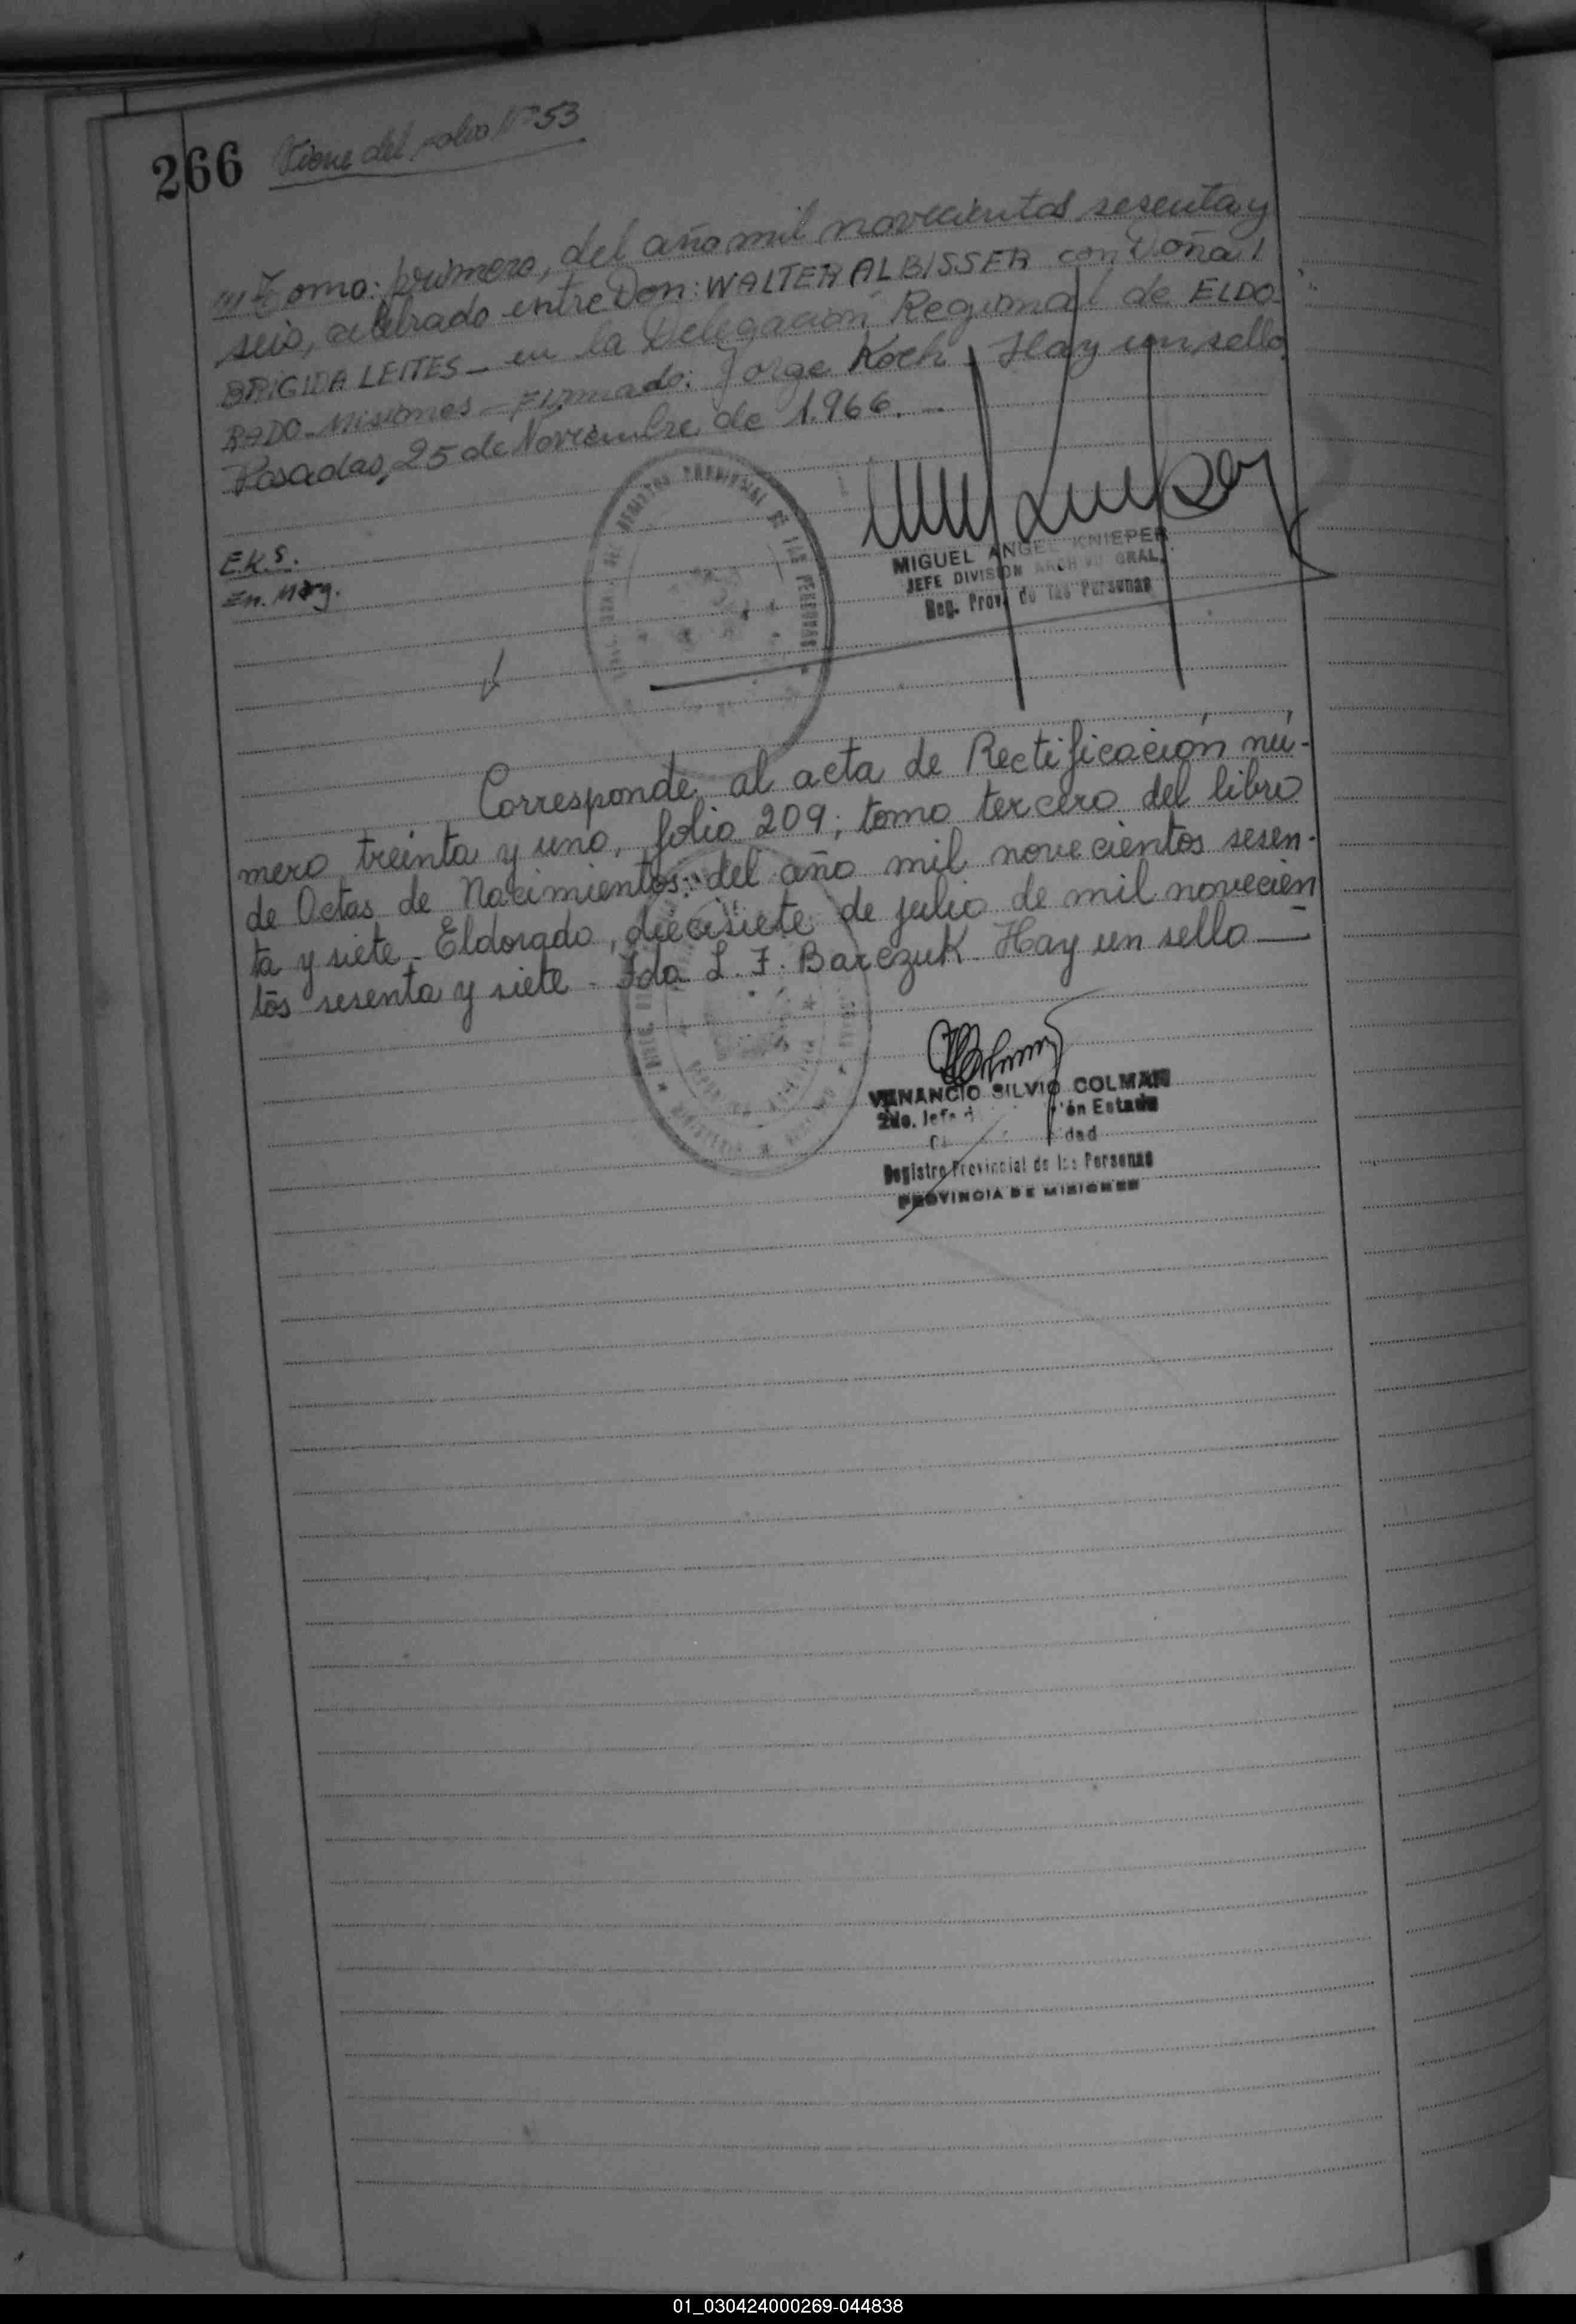 266 Viene del folio Nº 53
/// Tomo: primero, del año mil novecientos sesenta y
seis, celebrado entre Don: WALTER ALBISSER con Doña /
BRÍGIDA LEITES - en la Delegación Regional de ELDO-
RADO - Misiones - Firmado: Jorge Koch. Hay un sello.
Posadas, 25 de Noviembre de 1.966. -
E.K.S.
En. Marg.
MIGUEL ANGEL KNIEPER
JEFE DIVISION ARCHIVO GRAL.
Reg. Prov. de las Personas
Corresponde al acta de Rectificación nú-
mero treinta y uno, folio 209; tomo tercero del libro
de Actas de Nacimientos del año mil novecientos sesen-
ta y siete - Eldorado, diecisiete de julio de mil novecien
tos sesenta y siete - Fdo L. F. Barczuk. Hay un sello —
VENANCIO SILVIO COLMAN
2do. Jefe Estado
dad
Registro Provincial de las Personas
PROVINCIA DE MISIONES
01_030424000269-044838